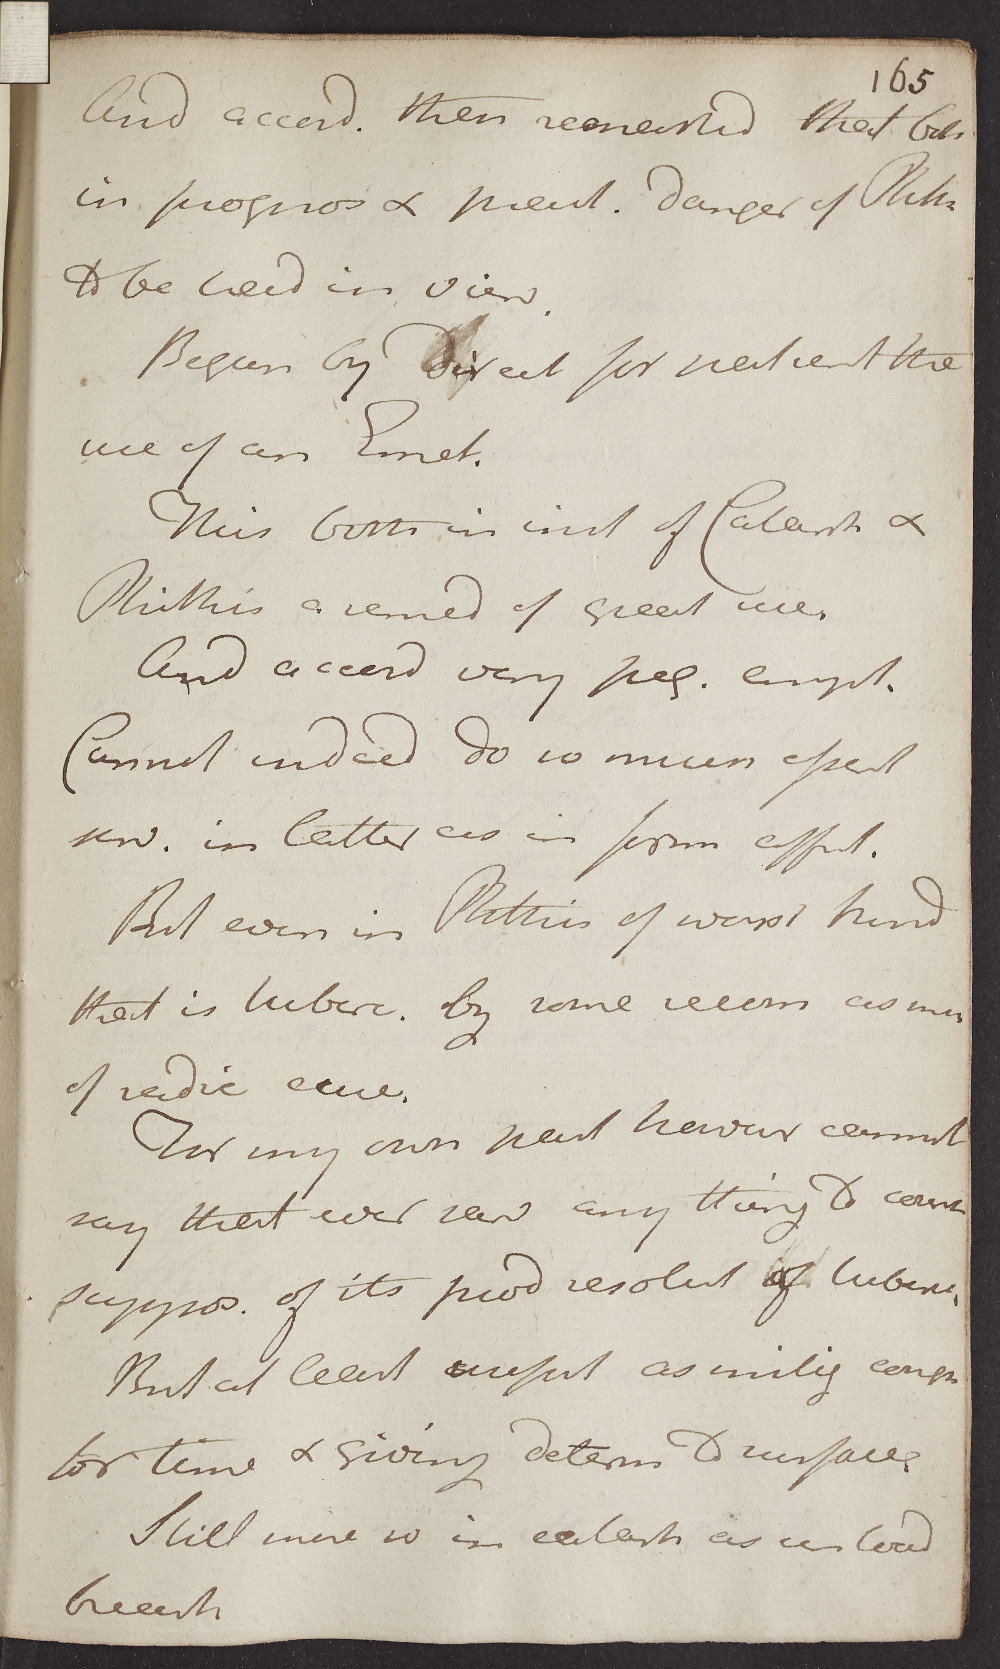 165
And accord. then remarked that both
in prognos & treat. danger of Phth
to be had in view.
Begun by direct for patient the
use of an Emet.
This both in inst of Catarrh &
Phthis a remed of great use.
And accord very freq. empl.
Cannot indeed do so much essent
serv. in latter as in form affect.
But even in Phthis of worst kind
that is tuberc. by some recom as mea
of radic cure.
For my own part howevr cannot
say that ever saw any thing to count
suppos. of its prod resolut of tuberc.
But at least useful as mitig cough
for time & giving determ to surface
Still more so in catarrh as unload
breast